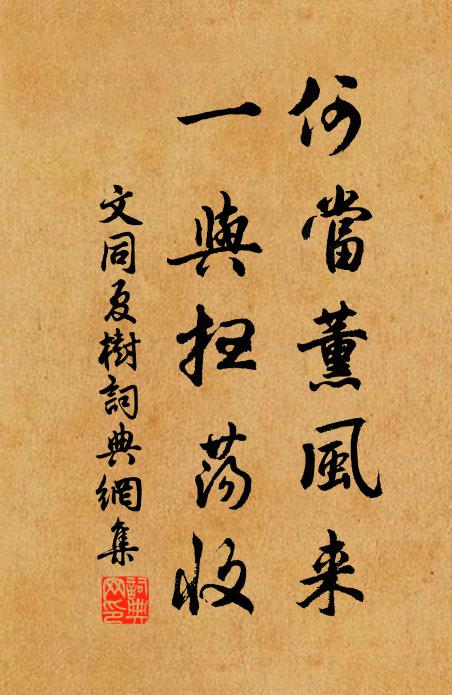 何當薰風来
一與掃蕩收
文同夏樹詞典網集
詞典网印